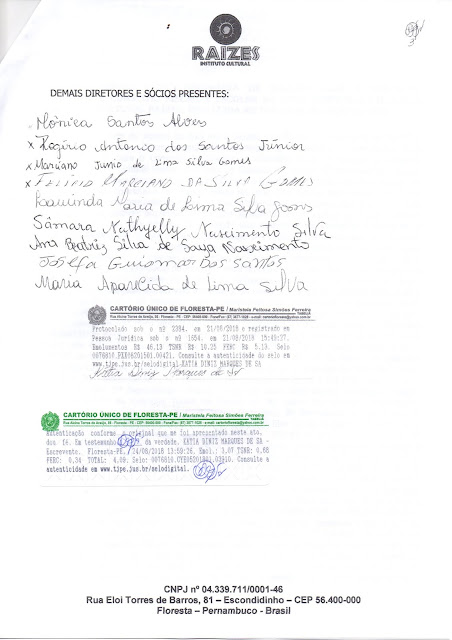 RAIZES
INSTITUTO CULTURAL
DEMAIS DIRETORES E SÓCIOS PRESENTES:
Mônica Santos Alves
x Rogério Antonio dos Santos Júnior
x Marciano Junio de Lima Silva Gomes
x Felício Marciano da Silva Gomes
Maria de Lima Silva
Sâmara Kathyelly Nascimento Silva
Ana Beatriz Silva de Souza Nascimento
Josefa Guiomar dos Santos
Maria Aparecida de Lima Silva
CARTÓRIO ÚNICO DE FLORESTA-PE / Maristela Feitosa Simões Ferreira
TABELIÃ
Protocolado sob o nº 2394, em 21/08/2018 e registrado em
Pessoa Jurídica sob o nº 1654, em 21/08/2018 15:49:27.
Emolumentos R$ 46.13 TSNR R$ 10.25 FERC R$ 5.13. Selo
Consulte a autenticidade do selo em
www.tjpe.jus.br/selodigital.KATIA DINIZ MARQUES DE SA
Katia Diniz Marques de Sá
CARTÓRIO ÚNICO DE FLORESTA-PE / Maristela Feitosa Simões Ferreira
TABELIÃ
Autenticação conforme o original que me foi apresentado neste ato,
dou fé. Em testemunho da verdade. KATIA DINIZ MARQUES DE SA -
Escrevente. Floresta-PE, 24/08/2018 13:59:26. Emol.: 3,07 TSNR: 0,68
FERC: 0,34 TOTAL: 4,09. Selo: Consulte a
autenticidade em www.tjpe.jus.br/selodigital.
CNPJ nº 04.339.711/0001-46
Rua Eloi Torres de Barros, 81 – Escondidinho – CEP 56.400-000
Floresta – Pernambuco - Brasil